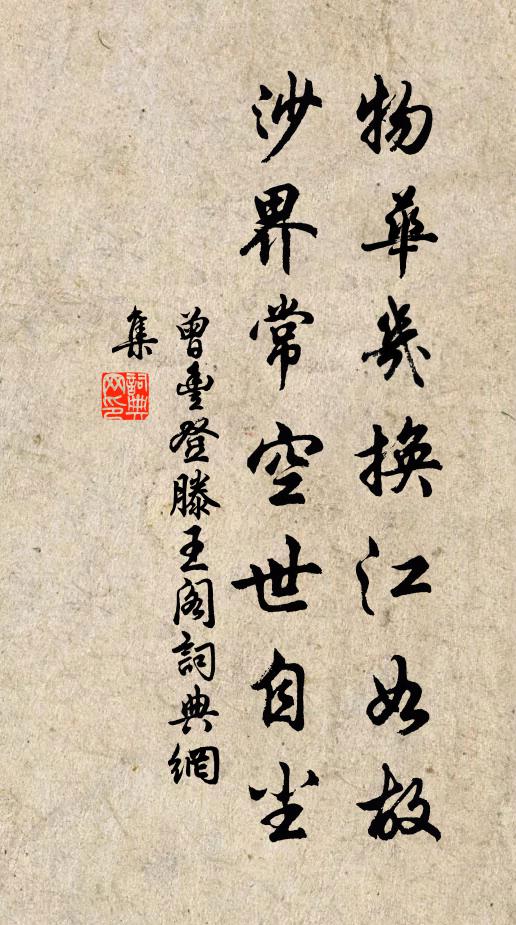 物華幾換江如故
沙界常空世自尘
曾豊登滕王阁詞典網
集
詞典
网印